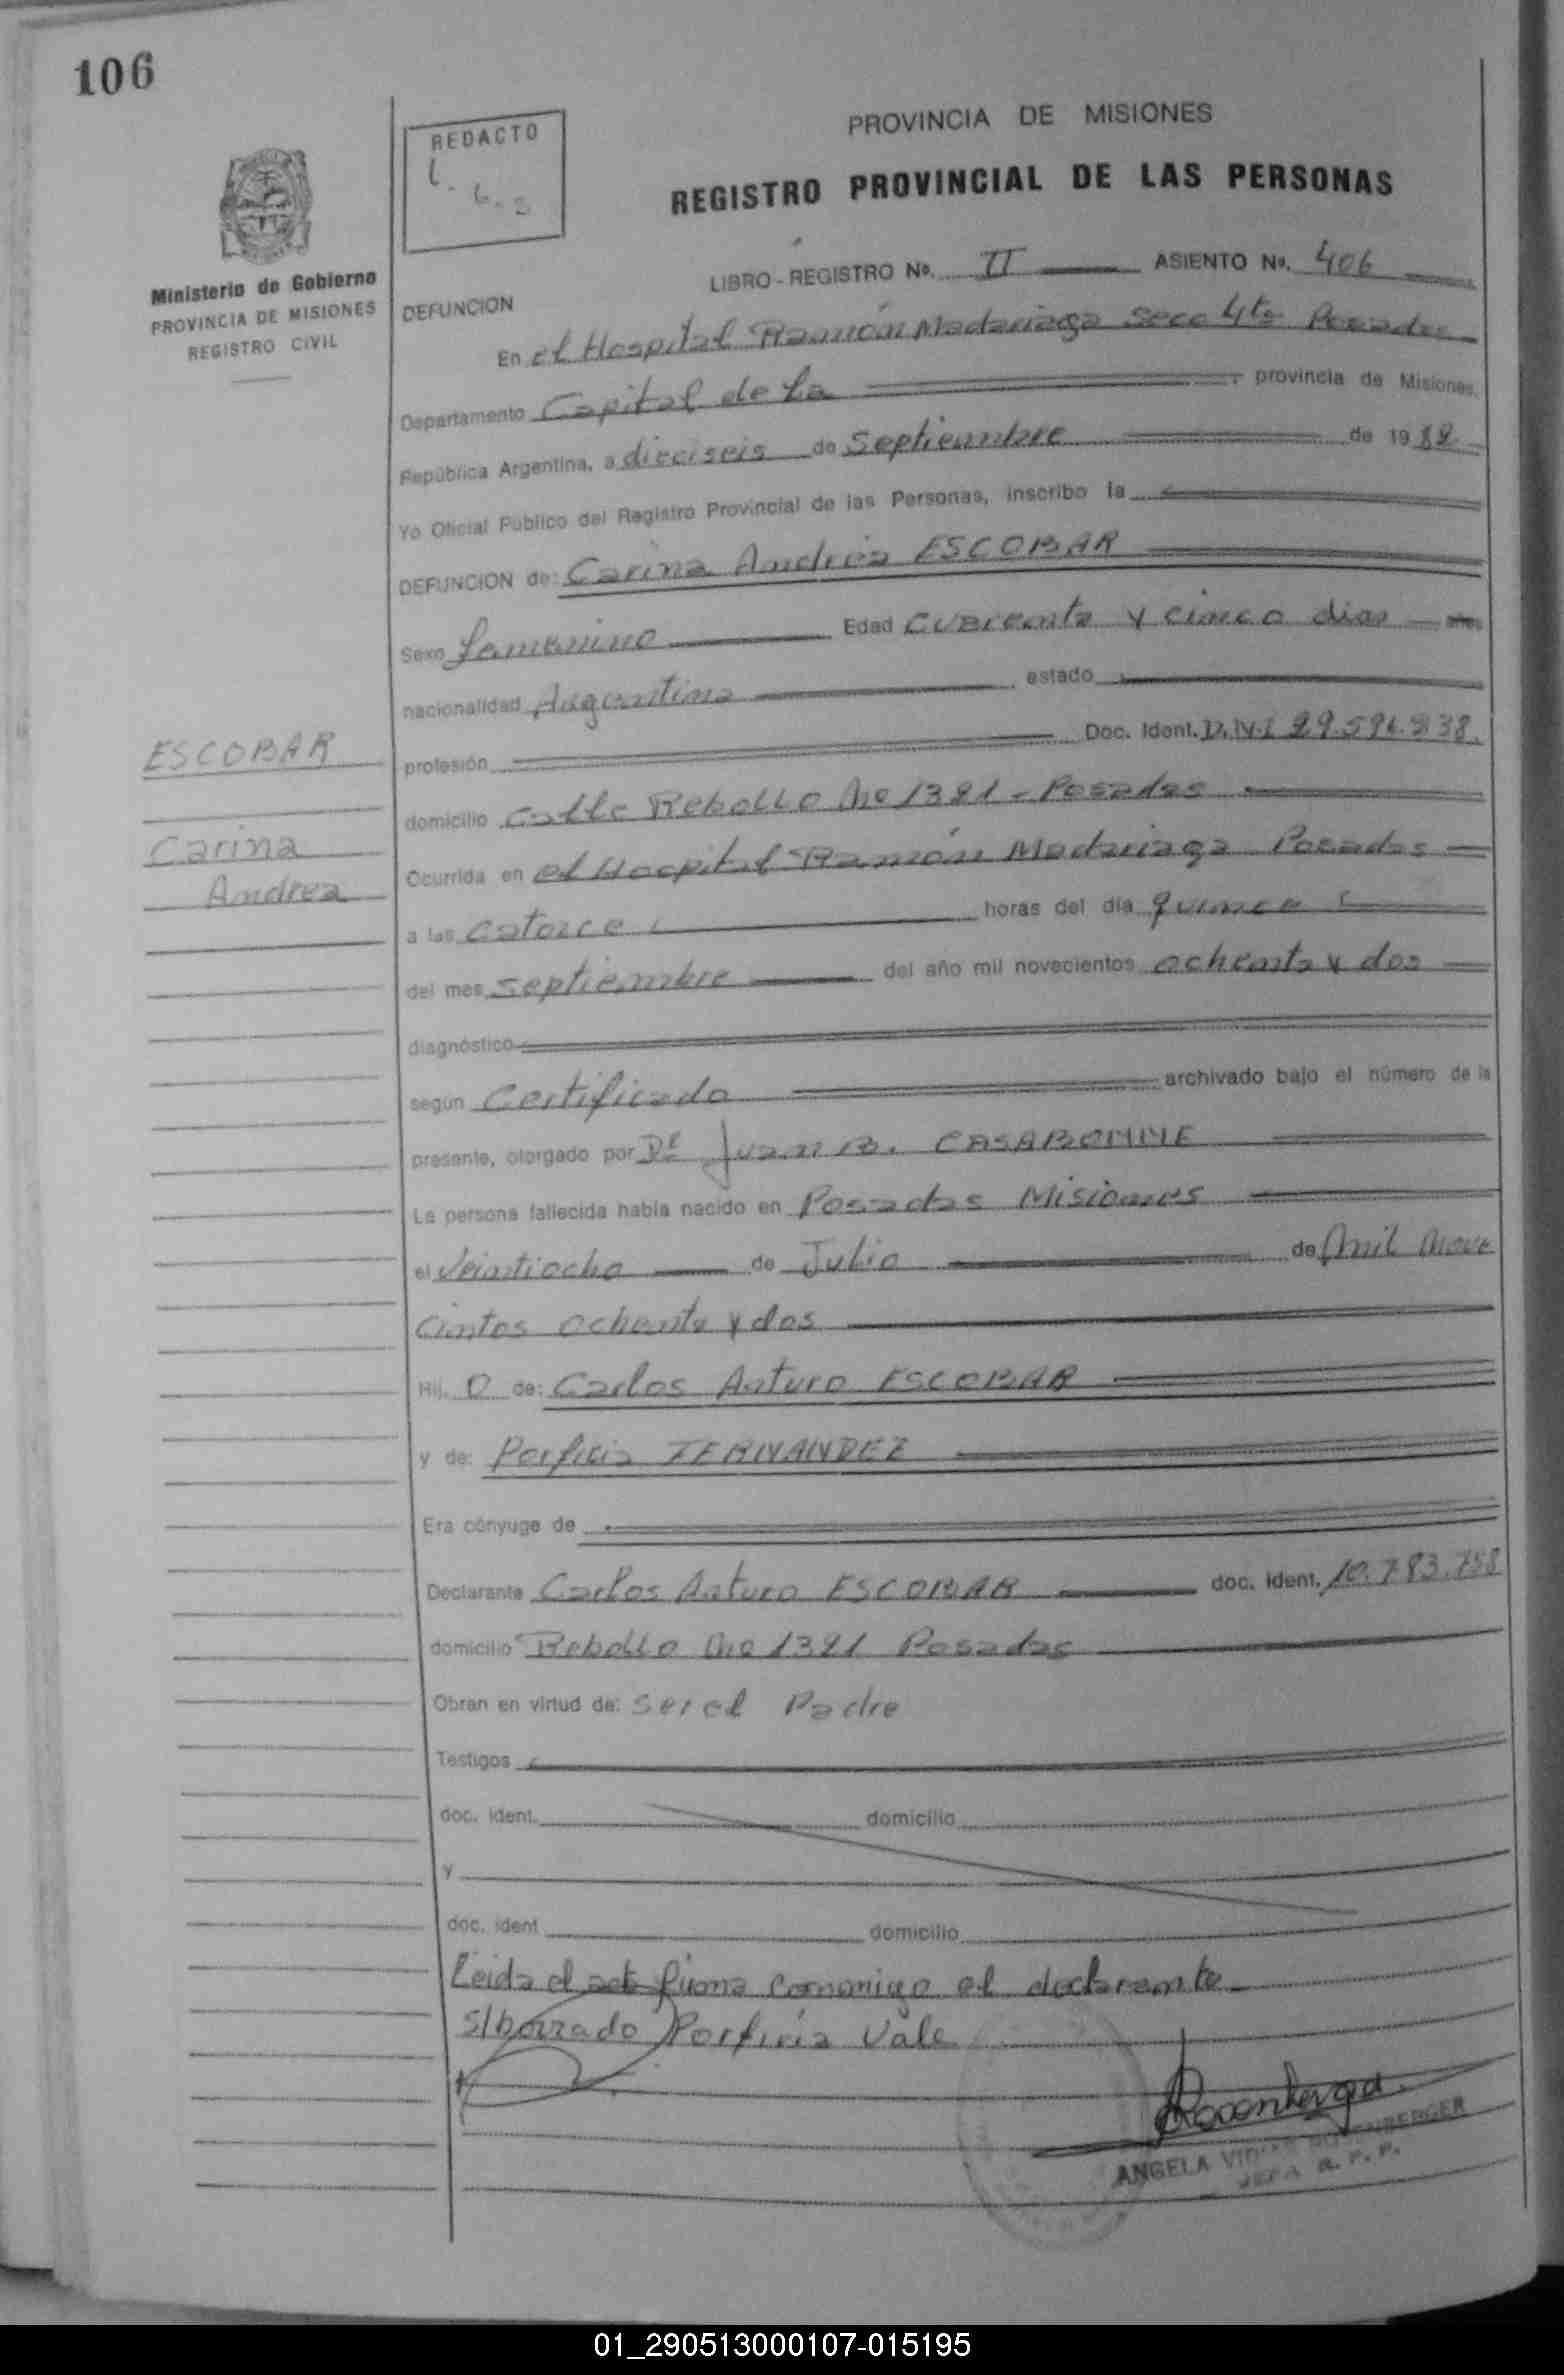 106
REDACTO
PROVINCIA DE MISIONES
REGISTRO PROVINCIAL DE LAS PERSONAS
Ministerio de Gobierno
PROVINCIA DE MISIONES
REGISTRO CIVIL
LIBRO - REGISTRO Nº. II ASIENTO Nº. 406
DEFUNCION
En el Hospital Ramón Madariaga Secc 4ta Posadas
Departamento Capital de La provincia de Misiones,
República Argentina, a dieciseis de Septiembre de 1982
Yo Oficial Público del Registro Provincial de las Personas, inscribo la
DEFUNCION de: Carina Andrea ESCOBAR
Sexo femenino Edad cuarenta y cinco dias años
nacionalidad Argentina estado
profesión Doc. Ident. D.N.I 29.596.838.
domicilio calle Rebollo Nº 1321 - Posadas
Ocurrida en el Hospital Ramón Madariaga Posadas
a las catorce horas del día quince
del mes septiembre del año mil novecientos ochenta y dos
diagnóstico
según Certificado archivado bajo el número de la
presente, otorgado por Dr Juan B. CASABONNE
La persona fallecida había nacido en Posadas Misiones
el Veintiocho de Julio de Mil Nove
cintos ochenta y dos
Hij. a de: Carlos Arturo ESCOBAR
y de: Porfiria FERNANDEZ
Era cónyuge de
Declarante Carlos Arturo ESCOBAR doc. ident. 10.783.758
domicilio Rebollo Nº 1321 Posadas
Obran en virtud de: ser el Padre
Testigos
doc. ident. domicilio
y
doc. ident domicilio
Leida el acta firma conmigo el declarante
S/borrado Porfiria Vale
ANGELA ROSENBERGER
JEFA R. P. P.
ESCOBAR
Carina
Andrea
01_290513000107-015195